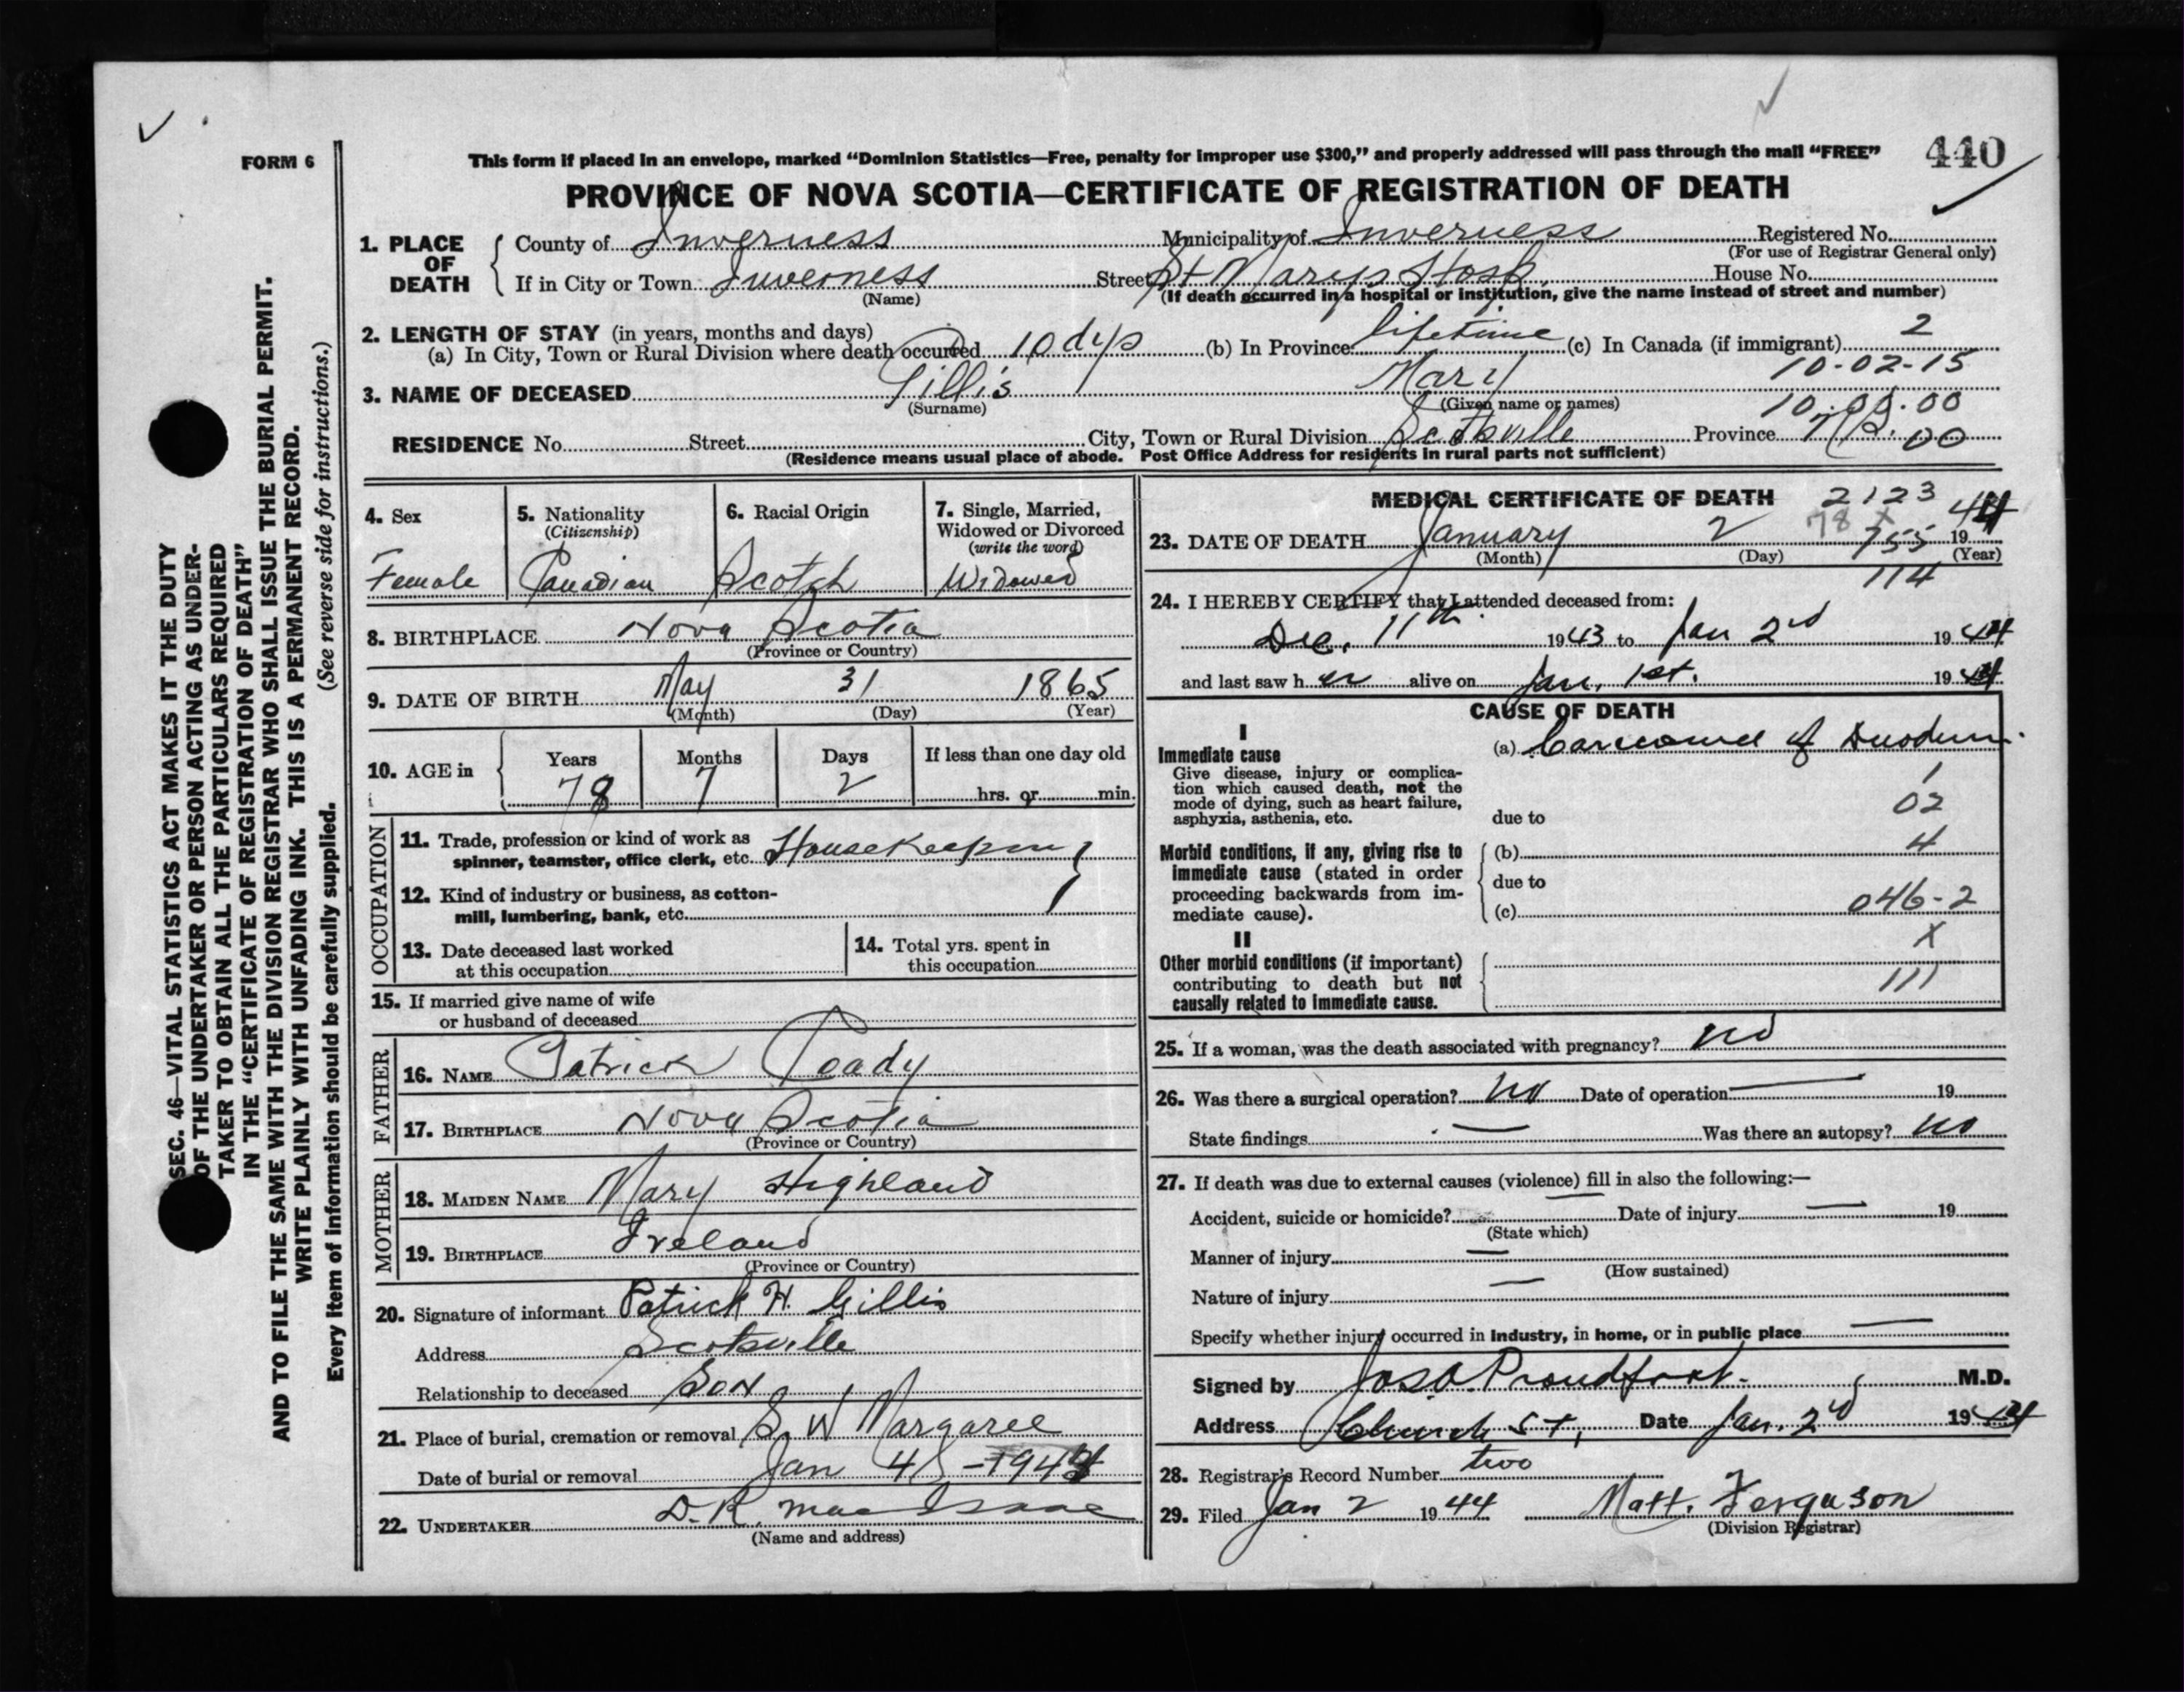 FORM 6
This form if placed in an envelope, marked "Dominion Statistics—Free, penalty for improper use $300," and properly addressed will pass through the mail "FREE"
440
PROVINCE OF NOVA SCOTIA—CERTIFICATE OF REGISTRATION OF DEATH
1. PLACE OF DEATH
County of Inverness Municipality of Inverness Registered No.
(For use of Registrar General only)
If in City or Town Inverness Street St Marys Hosp. House No.
(Name) (If death occurred in a hospital or institution, give the name instead of street and number)
2. LENGTH OF STAY (in years, months and days)
(a) In City, Town or Rural Division where death occurred 10 dys (b) In Province lifetime (c) In Canada (if immigrant) 2
10-02-15
3. NAME OF DECEASED Gillis Mary
(Surname) (Given name or names)
10.00.00
RESIDENCE No. Street City, Town or Rural Division Scotsville Province N.S. 00
(Residence means usual place of abode. Post Office Address for residents in rural parts not sufficient)
4. Sex
Female
5. Nationality
(Citizenship)
Canadian
6. Racial Origin
Scotch
7. Single, Married,
Widowed or Divorced
(write the word)
Widowed
8. BIRTHPLACE Nova Scotia
(Province or Country)
9. DATE OF BIRTH May 31 1865
(Month) (Day) (Year)
10. AGE in
Years Months Days If less than one day old
78 7 2 hrs. or min.
OCCUPATION
11. Trade, profession or kind of work as
spinner, teamster, office clerk, etc. Housekeeping
12. Kind of industry or business, as cotton-
mill, lumbering, bank, etc.
13. Date deceased last worked
at this occupation
14. Total yrs. spent in
this occupation
15. If married give name of wife
or husband of deceased
FATHER
16. NAME Patrick Coady
17. BIRTHPLACE Nova Scotia
(Province or Country)
MOTHER
18. MAIDEN NAME Mary Highland
19. BIRTHPLACE Ireland
(Province or Country)
20. Signature of informant Patrick H. Gillis
Address Scotsville
Relationship to deceased Son
21. Place of burial, cremation or removal S. W Margaree
Date of burial or removal Jan 4 - 1944
22. UNDERTAKER D.R. MacIsaac
(Name and address)
MEDICAL CERTIFICATE OF DEATH 2123
78 X
23. DATE OF DEATH January 2 755 19 44
(Month) (Day) (Year)
114
24. I HEREBY CERTIFY that I attended deceased from:
Dec. 11th 1943 to Jan 2nd 1944
and last saw h er alive on Jan. 1st. 1944
CAUSE OF DEATH
I
Immediate cause
Give disease, injury or complica-
tion which caused death, not the
mode of dying, such as heart failure,
asphyxia, asthenia, etc.
(a) Carcinoma of Duodenum
1
02
due to
Morbid conditions, if any, giving rise to
immediate cause (stated in order
proceeding backwards from im-
mediate cause).
(b) 4
due to
(c) 046-2
II
X
Other morbid conditions (if important)
contributing to death but not
causally related to immediate cause.
111
25. If a woman, was the death associated with pregnancy? no
26. Was there a surgical operation? no Date of operation — 19
State findings — Was there an autopsy? no
27. If death was due to external causes (violence) fill in also the following:—
Accident, suicide or homicide? — Date of injury — 19
(State which)
Manner of injury —
(How sustained)
Nature of injury —
Specify whether injury occurred in industry, in home, or in public place —
Signed by Jas. A. Proudfoot. M.D.
Address Church St, Date Jan. 2nd 1944
28. Registrar's Record Number two
29. Filed Jan 2 1944 Matt. F. Ferguson
(Division Registrar)
SEC. 46—VITAL STATISTICS ACT MAKES IT THE DUTY
OF THE UNDERTAKER OR PERSON ACTING AS UNDER-
TAKER TO OBTAIN ALL THE PARTICULARS REQUIRED
IN THE "CERTIFICATE OF REGISTRATION OF DEATH"
AND TO FILE THE SAME WITH THE DIVISION REGISTRAR WHO SHALL ISSUE THE BURIAL PERMIT.
WRITE PLAINLY WITH UNFADING INK. THIS IS A PERMANENT RECORD.
Every item of information should be carefully supplied. (See reverse side for instructions.)